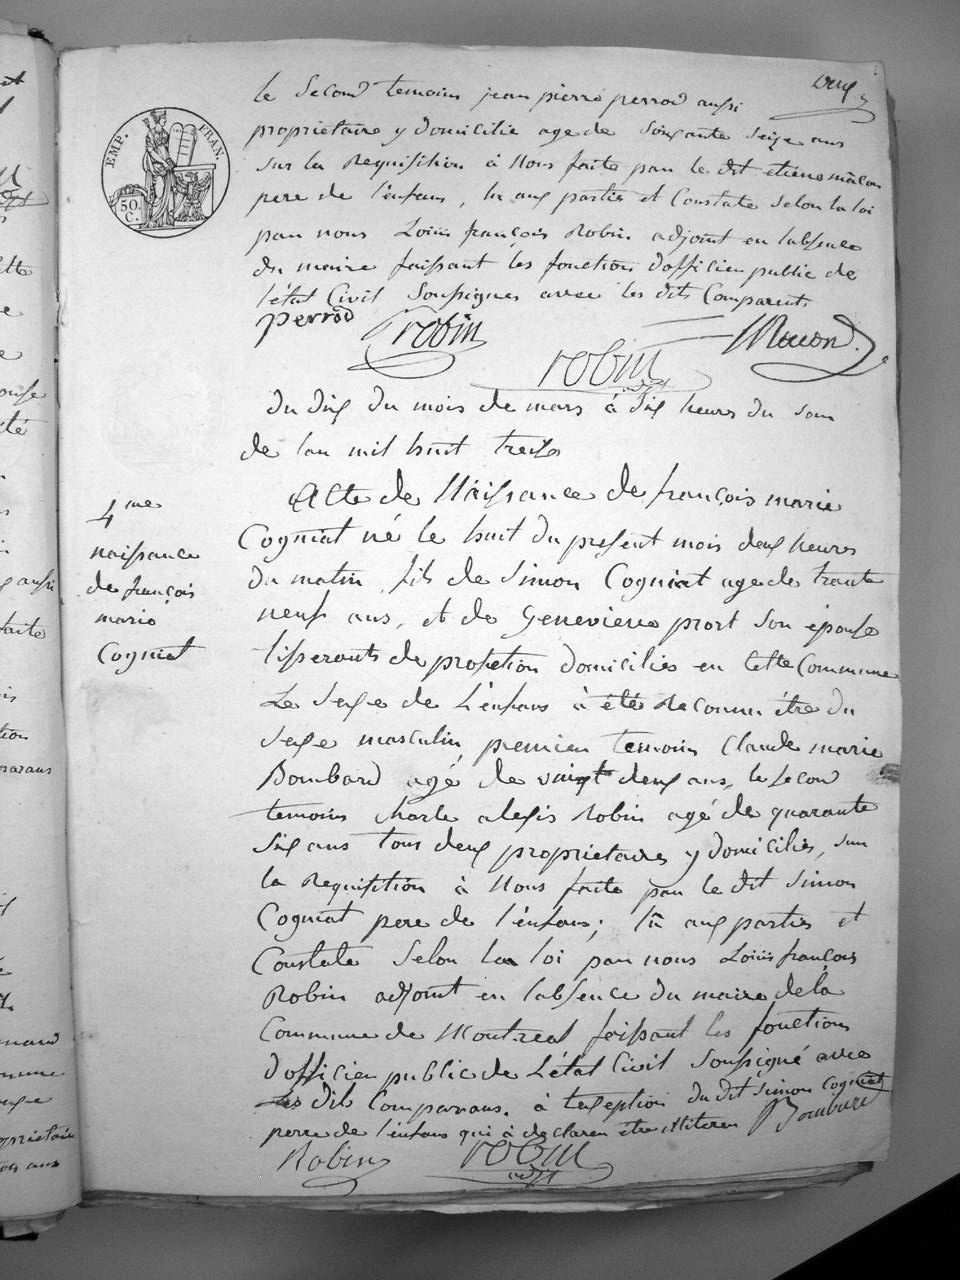 deux
EMP. FRAN.
50. C.
le Second temoins jean pierre perrod aussi
proprietaire y domicilie age de Soixante Seize ans
sur la Requisition à Nous faite par le dit etiene mâcon
pere de l'enfans, lu aux parties et Constate Selon la loi
par nous Loüis françois Robin adjoint en labsence
du maire faissant les fonction d'officier public de
l'état Civil Soussignes avec les dits Comparents
perrod Robin
robin adjt
Du dix du mois de mars à dix heures du soir
de lan mil huit treize
Acte de Naissance de françois marie
Cogniat né le huit du present mois deux heures
du matin, fils de Simon Cogniat age de trante
neuf ans, et de Genevieve prost Son épouse
tisserants de profetion domicilies en Cette Commune
Le Sexe de l'enfans à été Reconnu être du
Sexe masculin, premier temoin Claude marie
Bombard agé de vaingt deux ans, le Second
temoins charle alexis Robin agé de quarante
Six ans tous deux proprietaires y domicilies, sur
la Requisition à Nous faite par le dit Simon
Cogniat pere de l'enfans; lû aux parties et
Constate Selon la loi par nous Loüis françois
Robin adjoint en labsence du maire de la
Commune de Montreal faissant les fonctions
d'officier public de L'état Civil Soussigné avec
les dits Comparans. à lexeption du dit Simon Cogniat
pere de l'enfans qui à declaren être illiteren Bombard
Robin robin adjt
4me
naissance
de françois
marie
Cogniat